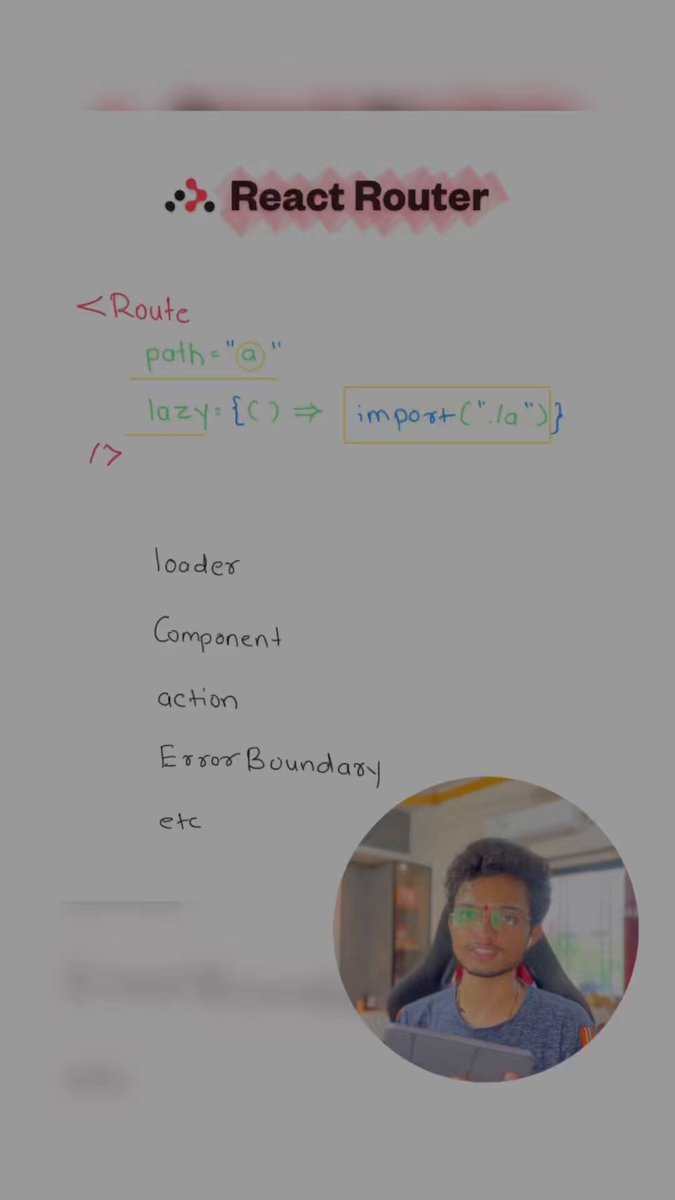 React Router
<Route
path="a"
lazy={() ⇒ import("./a")}
/>
loader
Component
action
ErrorBoundary
etc